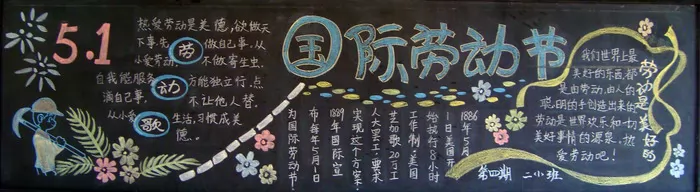 5.1
热爱劳动是美德,欲做天
下事先劳做自己事.从
小爱劳动,不做寄生虫.
自我能服务动方能独立行.点
滴自己事,不让他人替.
从小爱歌生活,习惯成美
德.
国际劳动节
1886年5月
1日美国开
始执行8小时
工作制,美国
芝加哥20万工
人大罢工,要求
实现这个方案.
1889年国际宣
布每年5月1日
为国际劳动节!
劳动是美好的
我们世界上最
美好的东西都
是由劳动,由人的
聪明的手创造出来的
劳动是世界欢乐和一切
美好事情的源泉,热
爱劳动吧!
第四期 二小班